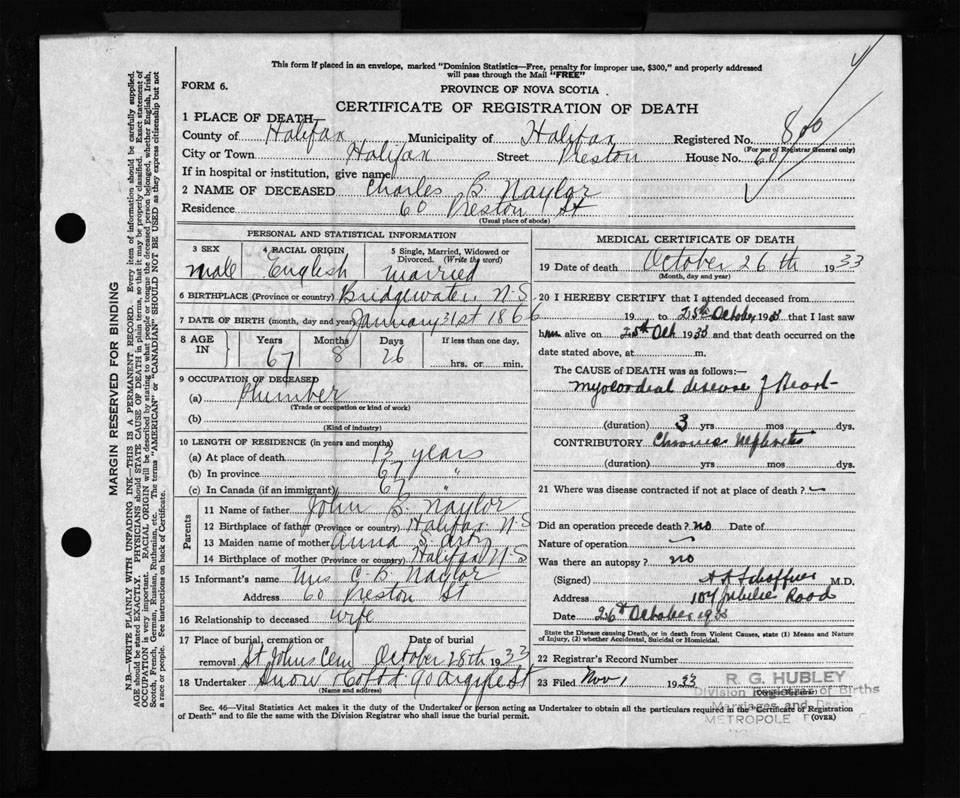 This form if placed in an envelope, marked "Dominion Statistics—Free, penalty for improper use, $300," and properly addressed
will pass through the Mail "FREE"
FORM 6.
PROVINCE OF NOVA SCOTIA
CERTIFICATE OF REGISTRATION OF DEATH
1 PLACE OF DEATH—
County of Halifax Municipality of Halifax Registered No. 800
(For use of Registrar General only)
City or Town Halifax Street Preston House No. 60
If in hospital or institution, give name
2 NAME OF DECEASED Charles B. Naylor
Residence 60 Preston St
(Usual place of abode)
PERSONAL AND STATISTICAL INFORMATION
3 SEX 4 RACIAL ORIGIN 5 Single, Married, Widowed or
Divorced. (Write the word)
Male English Married
6 BIRTHPLACE (Province or country) Bridgewater, N-S
7 DATE OF BIRTH (month, day and year) January 31st 1866
8 AGE IN Years Months Days If less than one day,
67 8 26 hrs. or min.
9 OCCUPATION OF DECEASED
(a) Plumber
(Trade or occupation or kind of work)
(b)
(Kind of industry)
10 LENGTH OF RESIDENCE (in years and months)
(a) At place of death 13 years
(b) In province 67 "
(c) In Canada (if an immigrant) 67
Parents
11 Name of father John B. Naylor
12 Birthplace of father (Province or country) Halifax N-S
13 Maiden name of mother Anna S.
14 Birthplace of mother (Province or country) Halifax N-S
15 Informant's name Mrs C. B. Naylor
Address 60 Preston St
16 Relationship to deceased wife
17 Place of burial, cremation or Date of burial
removal St Johns Cem October 28th 1933
18 Undertaker Snow & Co Ltd 90 Argyle St
(Name and address)
MEDICAL CERTIFICATE OF DEATH
19 Date of death October 26th 1933
(Month, day and year)
20 I HEREBY CERTIFY that I attended deceased from
19 to 25th October 1933 that I last saw
him alive on 25th Oct 1933 and that death occurred on the
date stated above, at m.
The CAUSE OF DEATH was as follows:—
Myocardial disease of Heart
(duration) 3 yrs mos dys.
CONTRIBUTORY Chronic Nephritis
(duration) yrs mos dys.
21 Where was disease contracted if not at place of death?
Did an operation precede death? no Date of
Nature of operation
Was there an autopsy? no
(Signed) Schaffner M.D.
Address 107 Jubilee Road
Date 26th October 1933
State the Disease causing Death, or in death from Violent Causes, state (1) Means and Nature
of Injury, (2) whether Accidental, Suicidal or Homicidal.
22 Registrar's Record Number
23 Filed Nov 1 1933
R. G. HUBLEY
Division Registrar of Births
Marriages and Deaths
(Division Registrar)
METROPOLE
Sec. 46—Vital Statistics Act makes it the duty of the Undertaker or person acting as Undertaker to obtain all the particulars required in the "Certificate of Registration
of Death" and to file the same with the Division Registrar who shall issue the burial permit.
(OVER)
MARGIN RESERVED FOR BINDING
N.B.—WRITE PLAINLY WITH UNFADING INK—THIS IS A PERMANENT RECORD. Every item of information should be carefully supplied.
AGE should be stated EXACTLY. PHYSICIANS should STATE CAUSE OF DEATH in plain terms, so that it may be properly classified. Exact statement of
OCCUPATION is very important. RACIAL ORIGIN will be described by stating to what people or tongue the deceased person belonged, whether English, Irish,
Scotch, French, German, Russian, Ruthenian, etc. The terms "AMERICAN" or "CANADIAN" SHOULD NOT BE USED as they express citizenship but not
a race or people. See instructions on back of Certificate.